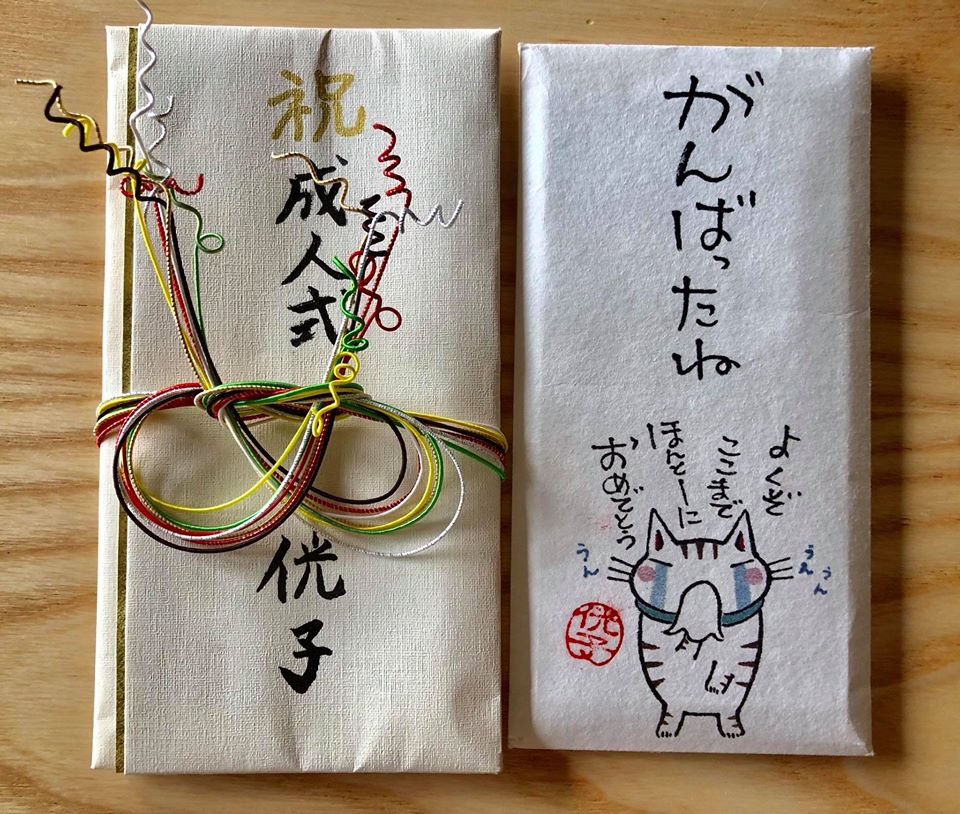 祝
成人式
侊子
がんばったね
よくぞ
ここまで
ほんとーに
おめでとう
うん
うんうん
侊子